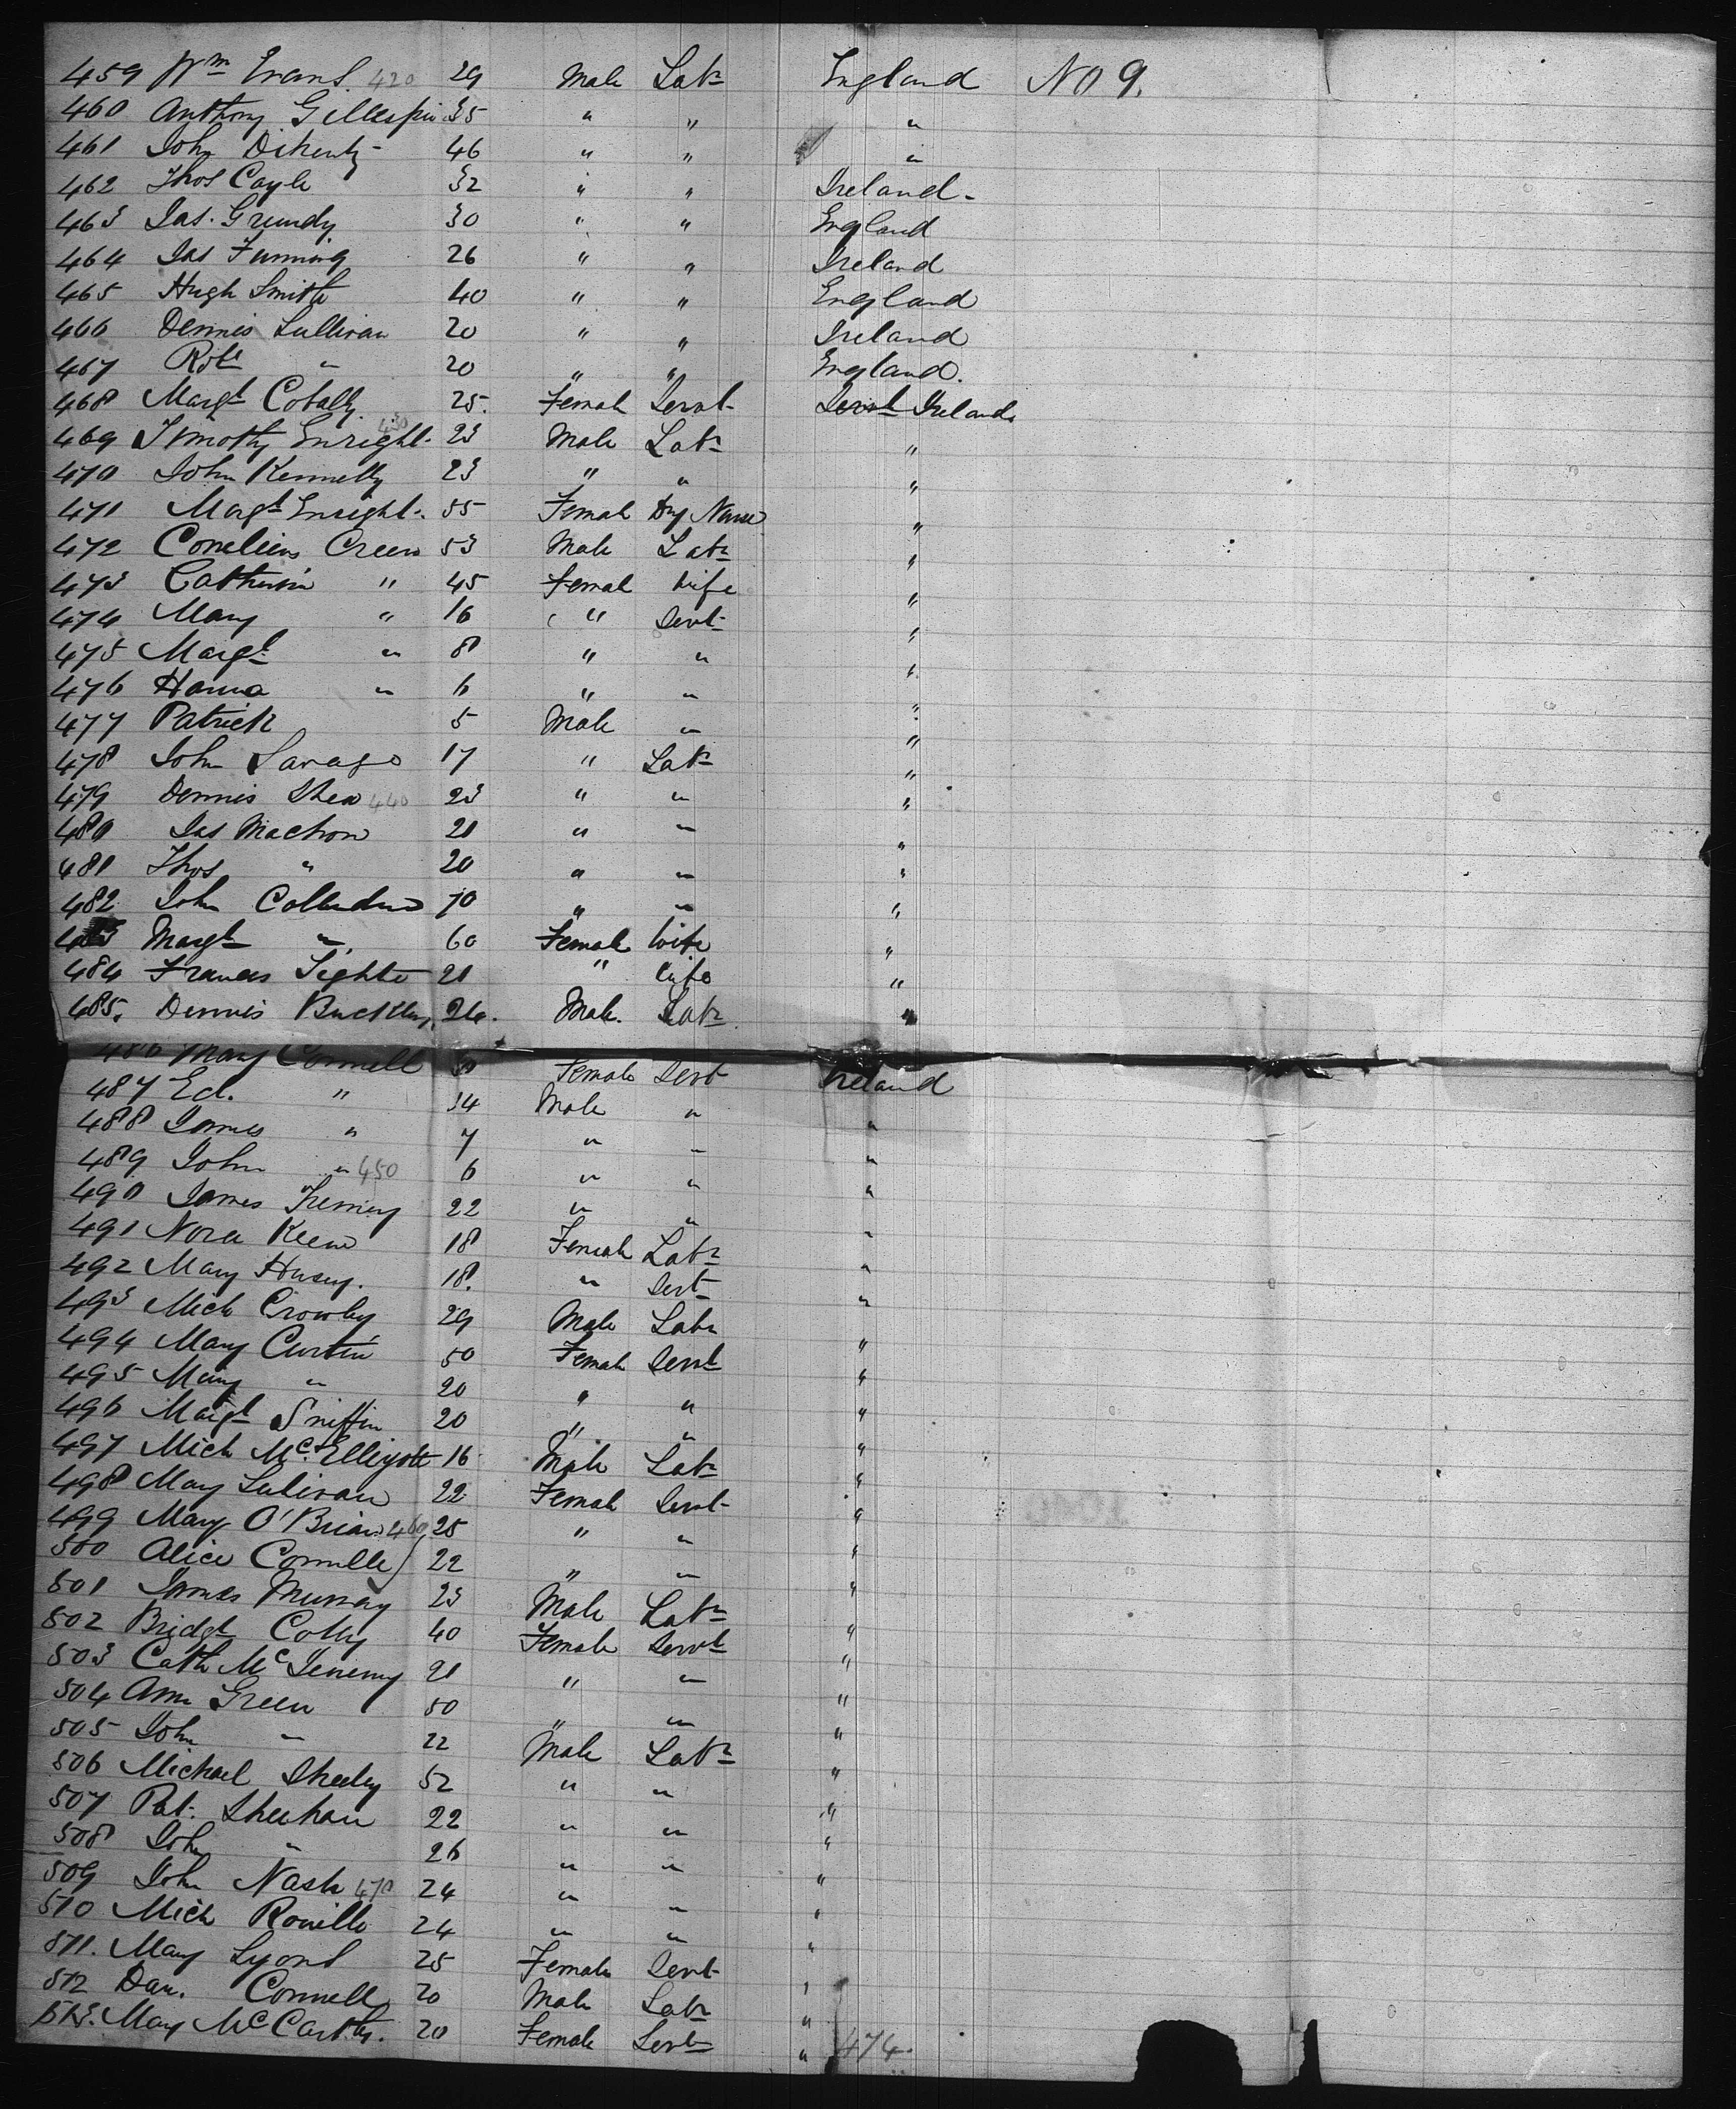 459 Wm Evans. 420 29 Male Labr England No 9.
460 Anthony Gillespie 35 " " "
461 John Diherty 46 " " "
462 Thos Coyle 32 " " Ireland.
463 Jas. Grundy 30 " " England
464 Jas Funning 26 " " Ireland
465 Hugh Smith 40 " " England
466 Dennis Sullivan 20 " " Ireland
467 Robt " 20 " " England.
468 Margt 25. Female Servt Servt Ireland.
469 Timothy Enright. 430 23 Male Labr "
470 John Kennelly 23 " " "
471 Margt Enright. 55 Female Dry Nurse "
472 Cornelius Creen 53 Male Labr "
473 Catherin " 45 Female Wife "
474 Mary " 16 " Servt "
475 Margt " 8 " " "
476 Hanna " 6 " " "
477 Patrick 5 Male " "
478 John Savage 17 " Labr "
479 Dennis Shea 440 23 " " "
480 Jas Machon 21 " " "
481 Thos " 20 " " "
482 John 70 " " "
483 Margt " 60 Female Wife "
484 Frances Tighte 21 " Wife "
485. Dennis Buckley. 26. Male. Labr "
486 Mary Connell Female Servt Ireland
487 Ed. " 14 Male " "
488 James " 7 " " "
489 John " 450 6 " " "
490 James 22 " " "
491 Nora Keen 18 Female Labr "
492 Mary Husey. 18. " Servt "
493 Mich Crowley 29 Male Labr "
494 Mary Curtin 50 Female Servt "
495 Mary " 20 " " "
496 Margt Sniffin 20 " " "
497 Mich McElligott 16 Male Labr "
498 Mary Sulivan 22 Female Servt "
499 Mary O'Brian 460 25 " " "
500 Alice Connelle 22 " " "
501 James Murray 23 Male Labr "
502 Bridgt Colly 40 Female Servt "
503 Cath 21 " " "
504 Ann Green 50 " " "
505 John " 22 Male Labr "
506 Michael Sheehy 52 " " "
507 Pat. Sheehan 22 " " "
508 John " 26 " " "
509 John Nash 470 24 " " "
510 Mich 24 " " "
511. Mary Lyons 25 Female Servt "
512 Dan. Connell 20 Male Labr "
513. Mary McCarthy. 20 Female Servt " 474.